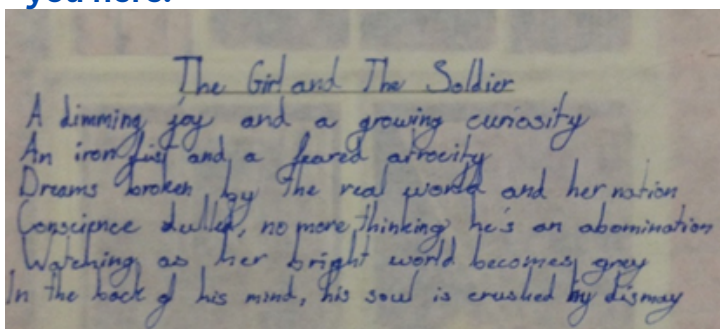 you here.
The Girl and The Soldier
A dimming joy and a growing curiosity
An iron fist and a feared atrocity
Dreams broken by the real world and her nation
Conscience dulled, no more thinking he's an abomination
Watching as her bright world becomes grey
In the back of his mind, his soul is crushed by dismay